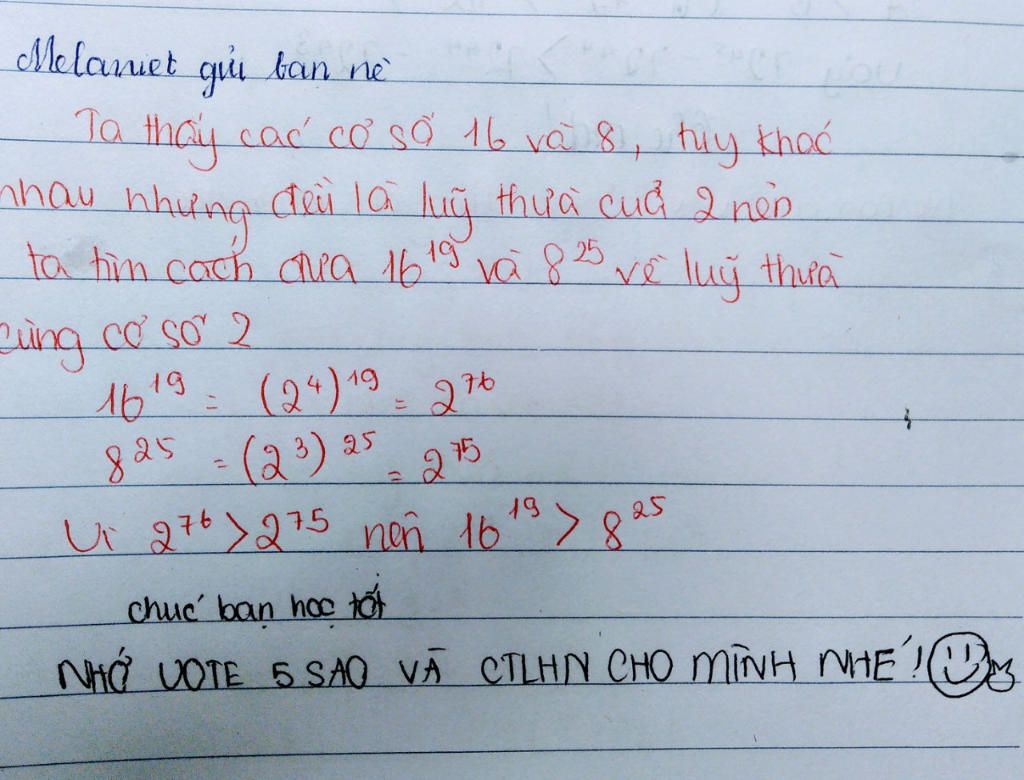 Melaniet gửi bạn nè
Ta thấy các cơ số 16 và 8, tuy khác
nhau nhưng đều là luỹ thừa cuả 2 nên
ta tìm cách đưa 16^19 và 8^25 về luỹ thừa
cùng cơ số 2
16^19 = (2^4)^19 = 2^76
8^25 = (2^3)^25 = 2^75
Vì 2^76 > 2^75 nên 16^19 > 8^25
chúc bạn học tốt
NHỚ VOTE 5 SAO VÀ CTLHN CHO MÌNH NHÉ!